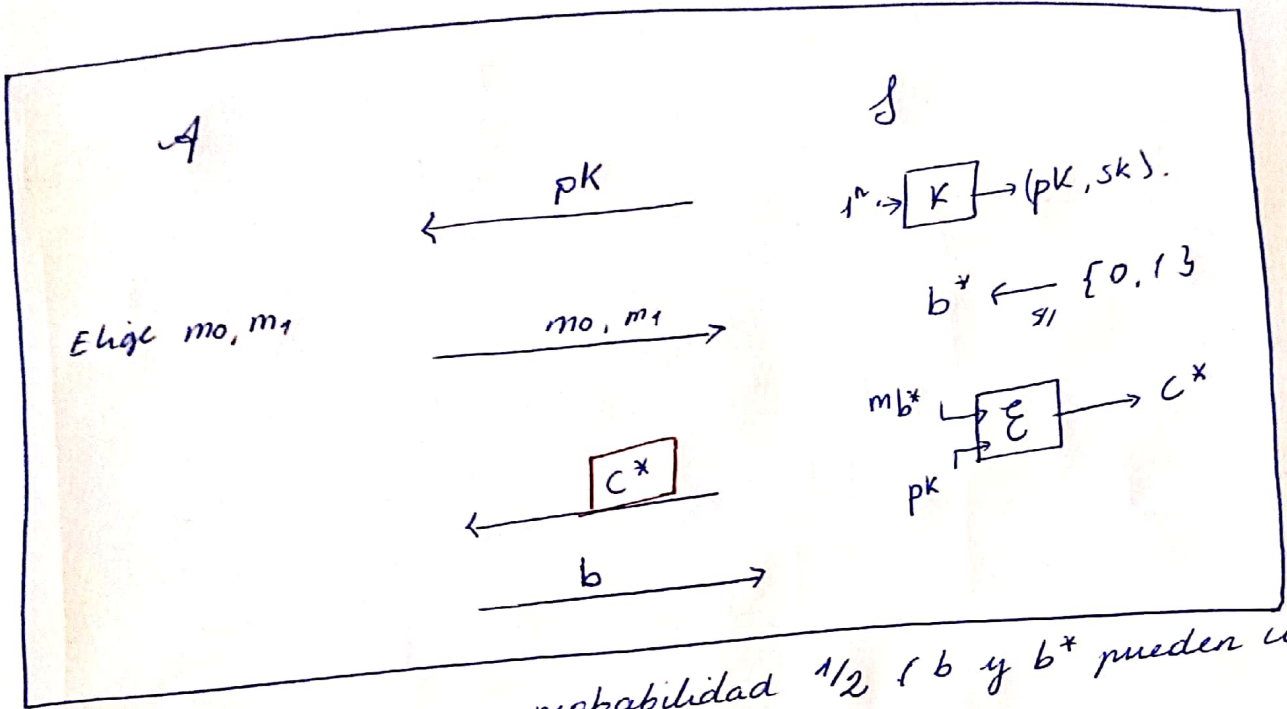 A S
pK
1ⁿ → K → (pK, sK).
b* ← {0,1}
$
Elige m0, m1
m0, m1
mb* E → C*
pK
C*
b
probabilidad 1/2 ( b y b* pueden